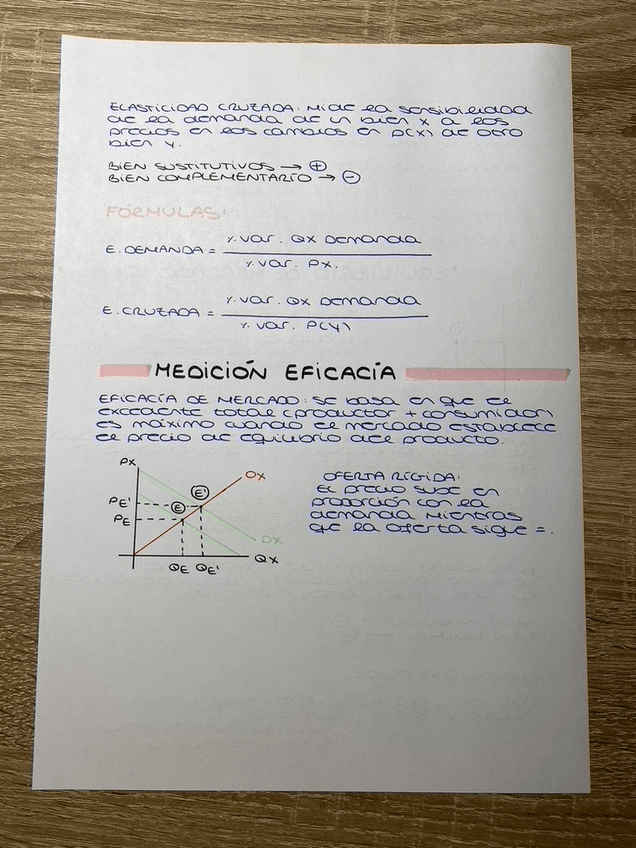 ELASTICIDAD CRUZADA: Mide la sensibilidad
de la demanda de un bien x a los
precios en los cambios en P(x) de otro
bien y.
BIEN SUSTITUTIVOS → +
BIEN COMPLEMENTARIO → -
FÓRMULAS:
E. DEMANDA = % var. Qx Demanda
% var. Px.
E. CRUZADA = % var. Qx Demanda
% var. P(y)
MEDICIÓN EFICACÍA
EFICACÍA DE MERCADO: se basa en que el
excedente total (productor + consumidor)
es máximo cuando el mercado establece
el precio de equilibrio del producto.
Px
Ox
PE'
PE
E
E'
Dx
Qx
QE QE'
OFERTA RÍGIDA:
El precio sube en
proporción con la
demanda mientras
que la oferta sigue =.